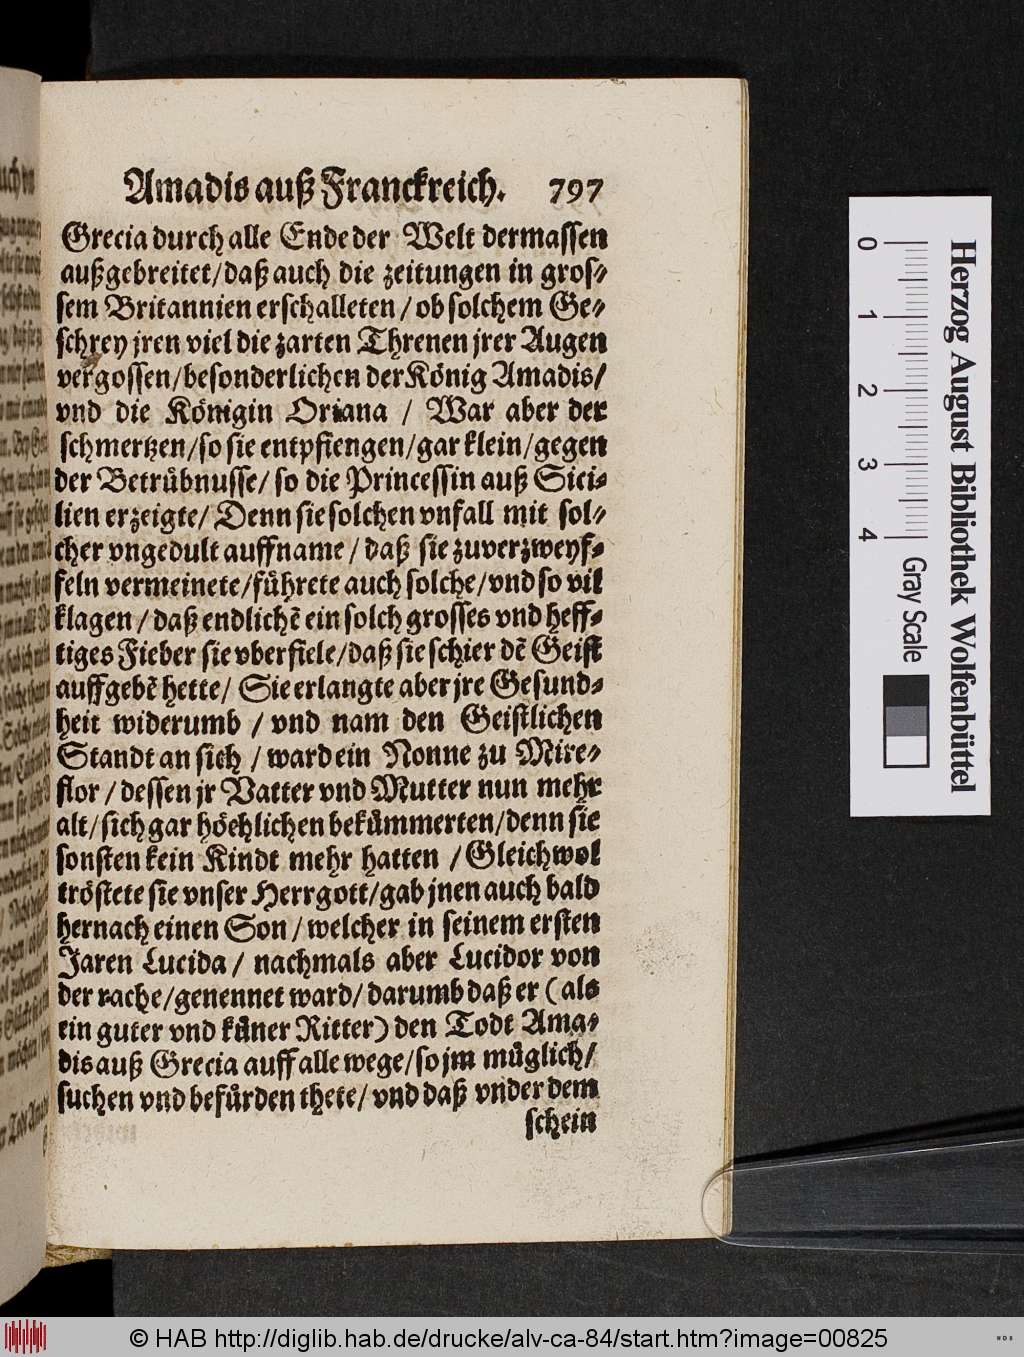 Amadis auß Franckreich. 797
Grecia durch alle Ende der Welt dermassen
außgebreitet/daß auch die zeitungen in gros-
sem Britannien erschalleten/ob solchem Ge-
schrey jren viel die zarten Threnen jrer Augen
vergossen/besonderlichen der König Amadis/
vnd die Königin Oriana / War aber der
schmertzen/so sie entpfiengen/gar klein/gegen
der Betrůbnusse/ so die Princessin auß Sici-
lien erzeigte/ Denn sie solchen vnfall mit sol-
cher vngedult auffname / daß sie zuverzweyf-
feln vermeinete/fůhrete auch solche/vnd so vil
klagen/daß endlichē ein solch grosses vnd heff-
tiges Fieber sie vberfiele/daß sie schier dē Geist
auffgebē hette/ Sie erlangte aber jre Gesund-
heit widerumb / vnd nam den Geistlichen
Standt an sich / ward ein Nonne zu Mire-
flor / dessen jr Vatter vnd Mutter nun mehr
alt/sich gar höchlichen bekůmmerten/denn sie
sonsten kein Kindt mehr hatten /Gleichwol
tröstete sie vnser Herrgott/gab jnen auch bald
hernach einen Son/welcher in seinem ersten
Jaren Lucida/ nachmals aber Lucidor von
der rache/genennet ward/darumb daß er (als
ein guter vnd kůner Ritter) den Todt Ama-
dis auß Grecia auff alle wege/so jm můglich/
suchen vnd befůrden thete/vnd daß vnder dem
schein
Herzog August Bibliothek Wolfenbüttel
0 1 2 3 4 Gray Scale
© HAB http://diglib.hab.de/drucke/alv-ca-84/start.htm?image=00825